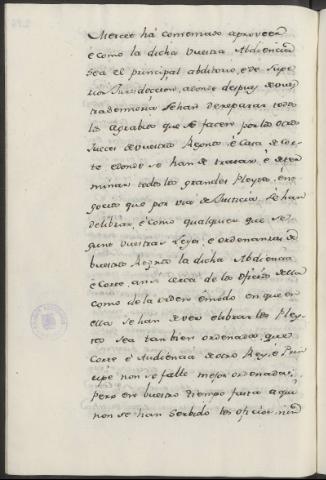 Merced há comenzado aproveer
é como la dicha vuestra Abdiencia
sea el principal abditorio, é de supe-
rior Jurisdiccion, adonde despues de vues-
tra Señoria se han de reparar todos
los agrabios que se facen por los otros
Jueces de vuestros Regnos, é Casa de Cor-
te é donde se han de tratar, é deter-
minar todos los grandes Pleytos, é ne-
gocios que por via de Justicia se han
de librar, é como qualquier que se-
gunt vuestras Leyes, é ordenanzas de
vuestros Regnos la dicha Abdiencia
é Corte, ansi cerca de los oficios della
como de la orden é modo en que en
ella se han de ver é librar los Pley-
tos sea tan bien ordenada, que
Corte é Audiencia de otro Rey, é Prin-
cipe non se falle mejor ordenada;
pero en vuestro tiempo fasta aqui
non se han serbido los oficios, nin